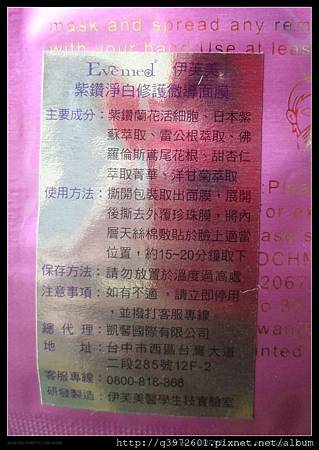 mask and spread any rem
with your hand.Use at leas
Evemed® 伊芙美
紫鑽淨白修護微導面膜
主要成分：紫鑽蘭花活細胞、日本紫
蘇萃取、雷公根萃取、佛
羅倫斯鳶尾花根、甜杏仁
萃取菁華、洋甘菊萃取
使用方法：撕開包裝取出面膜，展開
後撕去外覆珍珠膜，將內
層天絲棉敷貼於臉上適當
位置，約15~20分鐘取下
保存方法：請勿放置於溫度過高處
注意事項：如有不適，請立即停用
，並撥打客服專線
總代理：凱馨國際有限公司
地址：台中市西區台灣大道
二段285號12F-2
客服專線：0800-818-868
研發製造：伊芙美醫學生技實驗室
:Plea
DCHM
2067
http://q3972601.pixnet.net/album